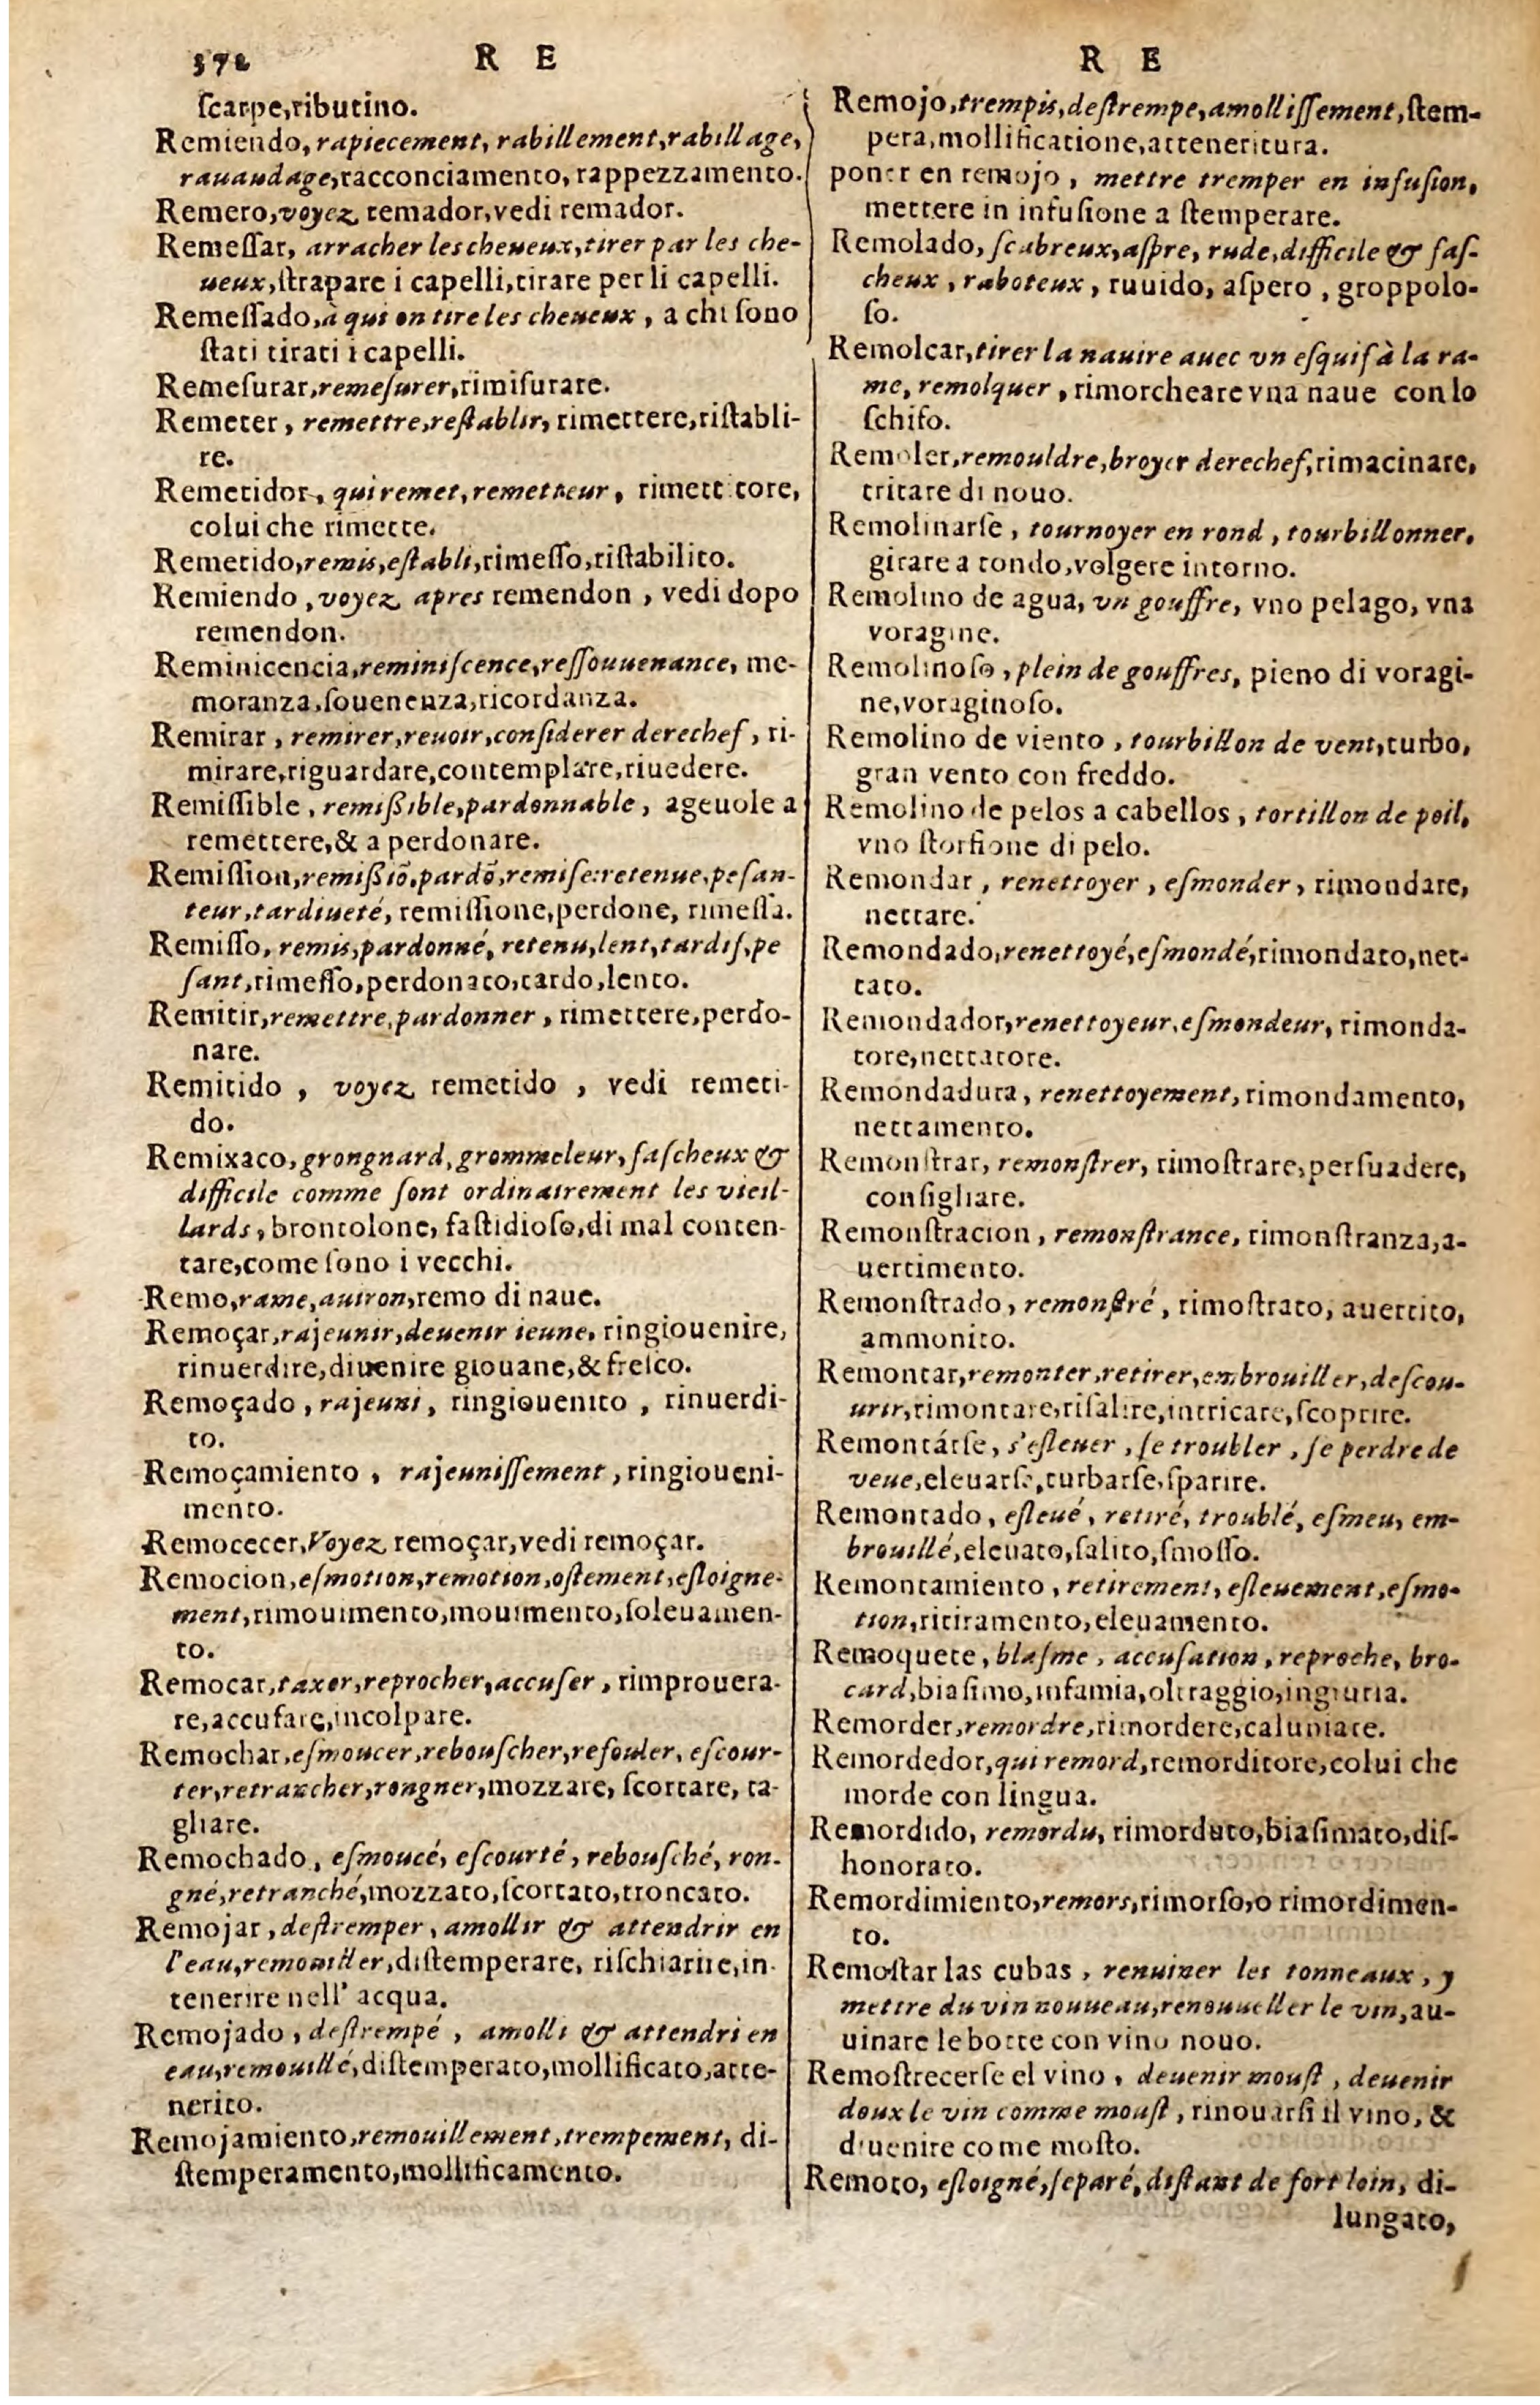 372 R E
ſcarpe,ributino.
Remiendo, rapiecement, rabillement,rabillage,
rauaudage,racconciamento, rappezzamento.
Remero,voyez remador,vedi remador.
Remeſſar, arracher les cheueux,tirer par les che-
ueux,ſtrapare i capelli,tirare per li capelli.
Remeſſado,à qui on tire les cheueux, a chi ſono
ſtati tirati i capelli.
Remeſurar,remeſurer,rimiſurare.
Remeter, remettre,reſtablir, rimettere,riſtabli-
re.
Remetidor, qui remet,remetteur, rimettitore,
colui che rimette.
Remetido,remis,eſtabli,rimeſſo,riſtabilito.
Remiendo, voyez apres remendon, vedi dopo
remendon.
Reminicencia,reminiſcence,reſſouuenance, me-
moranza,ſouenenza,ricordanza.
Remirar, remirer,reuoir,conſiderer derechef, ri-
mirare,riguardare,contemplare,riuedere.
Remiſſible, remißible,pardonnable, ageuole a
remettere,& a perdonare.
Remiſſion,remißiõ,pardõ,remiſe:retenue,peſan-
teur,tardiueté, remiſſione,perdone, rimeſſa.
Remiſſo, remis,pardonné, retenu,lent,tardif,pe
ſant,rimeſſo,perdonato,tardo,lento.
Remitir,remettre,pardonner, rimettere,perdo-
nare.
Remitido, voyez remetido, vedi remeti-
do.
Remixaco,grongnard,grommeleur,faſcheux &
difficile comme ſont ordinairement les vieil-
lards, brontolone, faſtidioſo,di mal conten-
tare,come ſono i vecchi.
Remo,rame,auiron,remo di naue.
Remoçar,rajeunir,deuenir ieune, ringiouenire,
rinuerdire,diuenire giouane,& freſco.
Remoçado, rajeuni, ringiouenito, rinuerdi-
to.
Remoçamiento, rajeuniſſement, ringioueni-
mento.
Remocecer,Voyez remoçar,vedi remoçar.
Remocion,eſmotion,remotion,oſtement,eſloigne-
ment,rimouimento,mouimento,ſoleuamen-
to.
Remocar,taxer,reprocher,accuſer, rimprouera-
re,accuſare,incolpare.
Remochar,eſmoucer,rebouſcher,refouler, eſcour-
ter,retrancher,rongner,mozzare, ſcortare, ta-
gliare.
Remochado, eſmoucé, eſcourté, rebouſché, ron-
gné,retranché,mozzato,ſcortato,troncato.
Remojar, deſtremper, amollir & attendrir en
l'eau,remouiller,diſtemperare, riſchiarire,in-
tenerire nell' acqua.
Remojado, deſtrempé, amolli & attendri en
eau,remouillé,diſtemperato,mollificato,atte-
nerito.
Remojamiento,remouillement,trempement, di-
ſtemperamento,mollificamento.
R E
Remojo,trempis,deſtrempe,amolliſſement,ſtem-
pera,mollificatione,atteneritura.
poner en remojo, mettre tremper en infuſion,
mettere in infuſione a ſtemperare.
Remolado, ſcabreux,aſpre, rude,difficile & faſ-
cheux, raboteux, ruuido, aſpero, groppolo-
ſo.
Remolcar,tirer la nauire auec vn eſquif à la ra-
me, remolquer, rimorcheare vna naue con lo
ſchifo.
Remoler,remouldre,broyer derechef,rimacinare,
tritare di nouo.
Remolinarſe, tournoyer en rond, tourbillonner,
girare a tondo,volgere intorno.
Remolino de agua, vn gouffre, vno pelago, vna
voragine.
Remolinoſo, plein de gouffres, pieno di voragi-
ne,voraginoſo.
Remolino de viento, tourbillon de vent,turbo,
gran vento con freddo.
Remolino de pelos a cabellos, tortillon de poil,
vno ſtorfione di pelo.
Remondar, renettoyer, eſmonder, rimondare,
nettare.
Remondado,renettoyé,eſmondé,rimondato,net-
tato.
Remondador,renettoyeur,eſmondeur, rimonda-
tore,nettatore.
Remondadura, renettoyement, rimondamento,
nettamento.
Remonſtrar, remonſtrer, rimoſtrare,perſuadere,
conſigliare.
Remonſtracion, remonſtrance, rimonſtranza,a-
uertimento.
Remonſtrado, remonſtré, rimoſtrato, auertito,
ammonito.
Remontar,remonter,retirer,embrouiller,deſcou-
urir,rimontare,riſalire,intricare,ſcoprire.
Remontárſe, s'eſleuer, ſe troubler, ſe perdre de
veue,eleuarſe,turbarſe,ſparire.
Remontado, eſleué, retiré, troublé, eſmeu, em-
brouillé,eleuato,ſalito,ſmoſſo.
Remontamiento, retirement, eſleuement,eſmo-
tion,ritiramento,eleuamento.
Remoquete, blaſme, accuſation, reproche, bro-
card,biaſimo,infamia,oltraggio,ingiuria.
Remorder,remordre,rimordere,caluniare.
Remordedor,qui remord,remorditore,colui che
morde con lingua.
Remordido, remordu, rimorduto,biaſimato,diſ-
honorato.
Remordimiento,remors,rimorſo,o rimordimen-
to.
Remoſtar las cubas, renuiner les tonneaux, y
mettre du vin nouueau,renouueller le vin,au-
uinare le botte con vino nouo.
Remoſtrecerſe el vino, deuenir mouſt, deuenir
doux le vin comme mouſt, rinouarſi il vino, &
diuenire come moſto.
Remoto, eſloigné,ſeparé,diſtant de fort loin, di-
lungato,